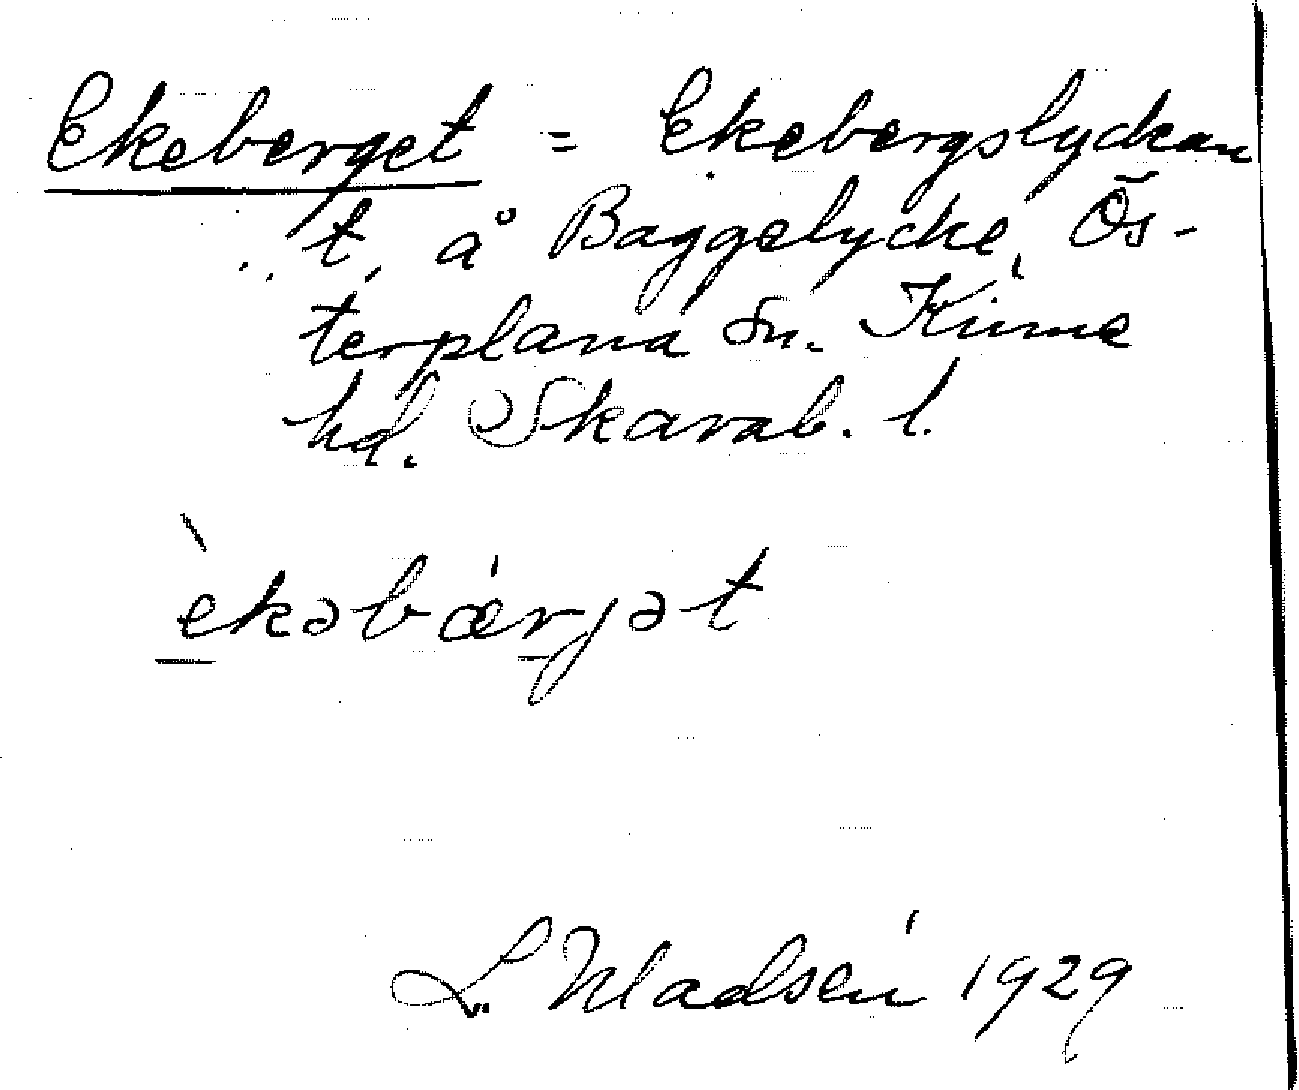 Ekeberget = Ekebergslyckan
t. å Baggelycke, Ös-
terplana sn. Kinne
hd. Skarab. l.
èkəbæ̀rjət
L. Madsén 1929